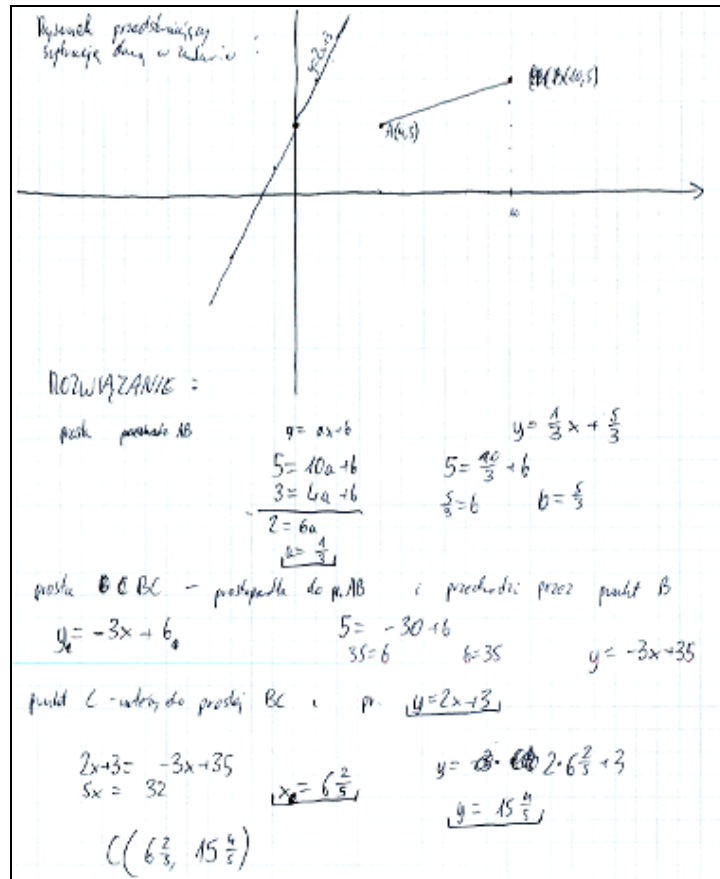 Rysunek przedstawiający
sytuację daną w zadaniu :
y=2x+3
A(4,3)
B(10,5)
10
ROZWIĄZANIE :
prosta AB y = ax+b y = 1/3 x + 5/3
5 = 10a+b 5 = 10/3 + b
3 = 4a+b 5/3 = b b = 5/3
- 2 = 6a
a = 1/3
prosta BC – prostopadła do pr. AB i przechodzi przez punkt B
y = -3x + b 5 = -30+b
35=b b=35 y = -3x+35
punkt C - należy do prostej BC i pr. y=2x+3
2x+3 = -3x+35 y = 2·6 2/5 +3
5x = 32 x = 6 2/5
y = 15 4/5
C(6 2/5, 15 4/5)